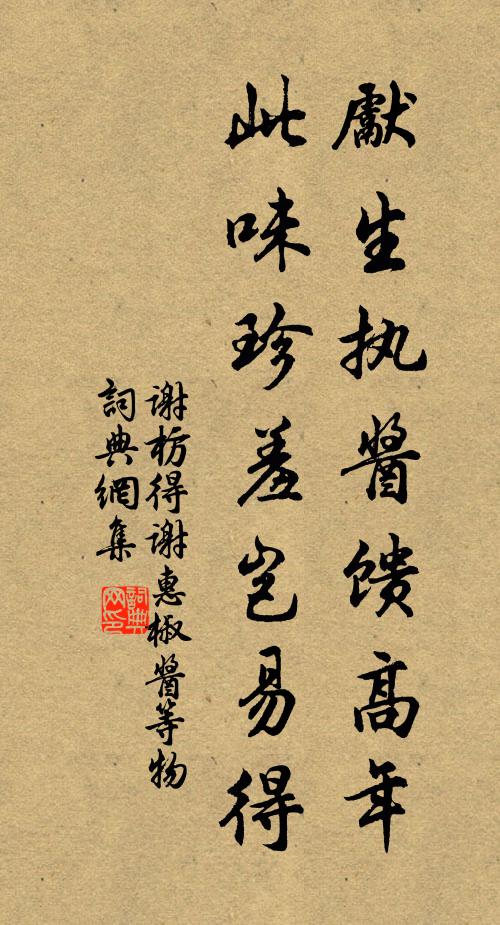 獻生执醬馈高年
此味珍羞岂易得
谢枋得谢惠椒醬等物
詞典網集
詞典网印